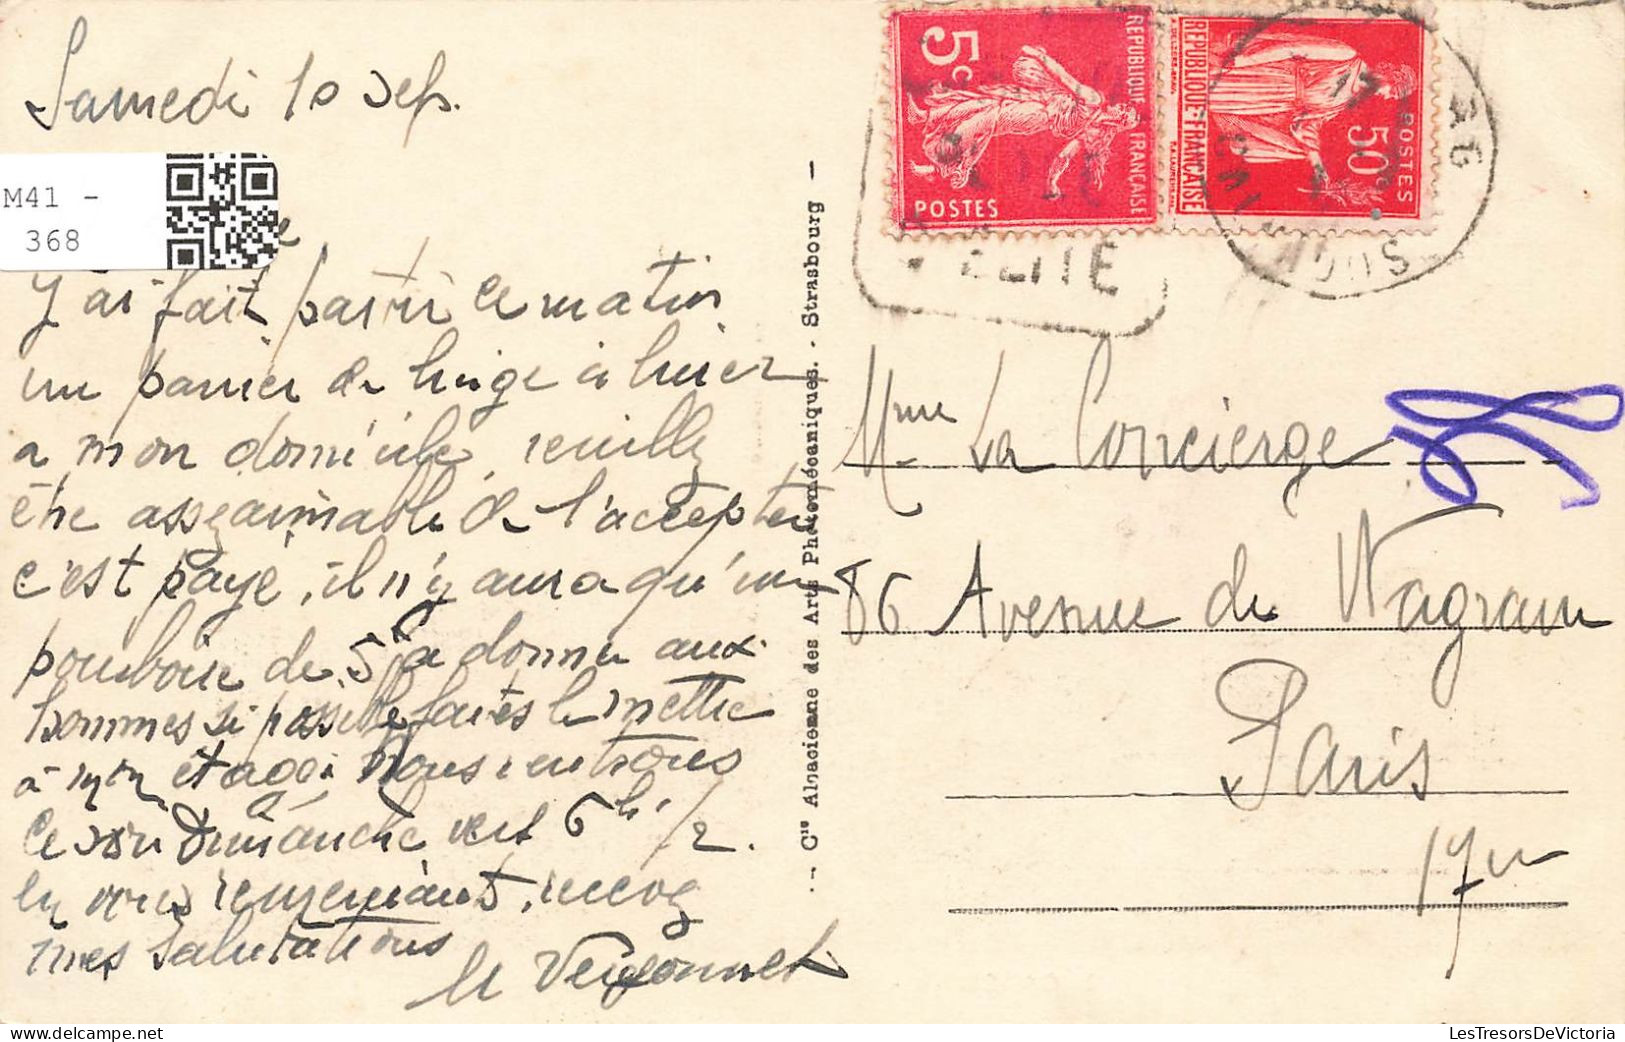 Samedi 10 Sep.
M41 -
368
J'ai fait partir ce matin
un panier de linge à livrer
a mon domicile, veuillez
être assez aimable de l'accepter
c'est payé, il n'y aura qu'un
pourboire de 5f a donner aux
hommes si possible faites le mettre
à mon étage. Nous rentrons
ce soir Dimanche vers 6h 1/2.
En vous remerciant, recevez
mes salutations
Cie Alsacienne des Arts Photomécaniques. - Strasbourg
5c
REPUBLIQUE FRANÇAISE
POSTES
REPUBLIQUE FRANÇAISE
50c
POSTES
17
Mme La Concierge
86 Avenue de Wagram
Paris
17e
LesTresorsDeVictoria